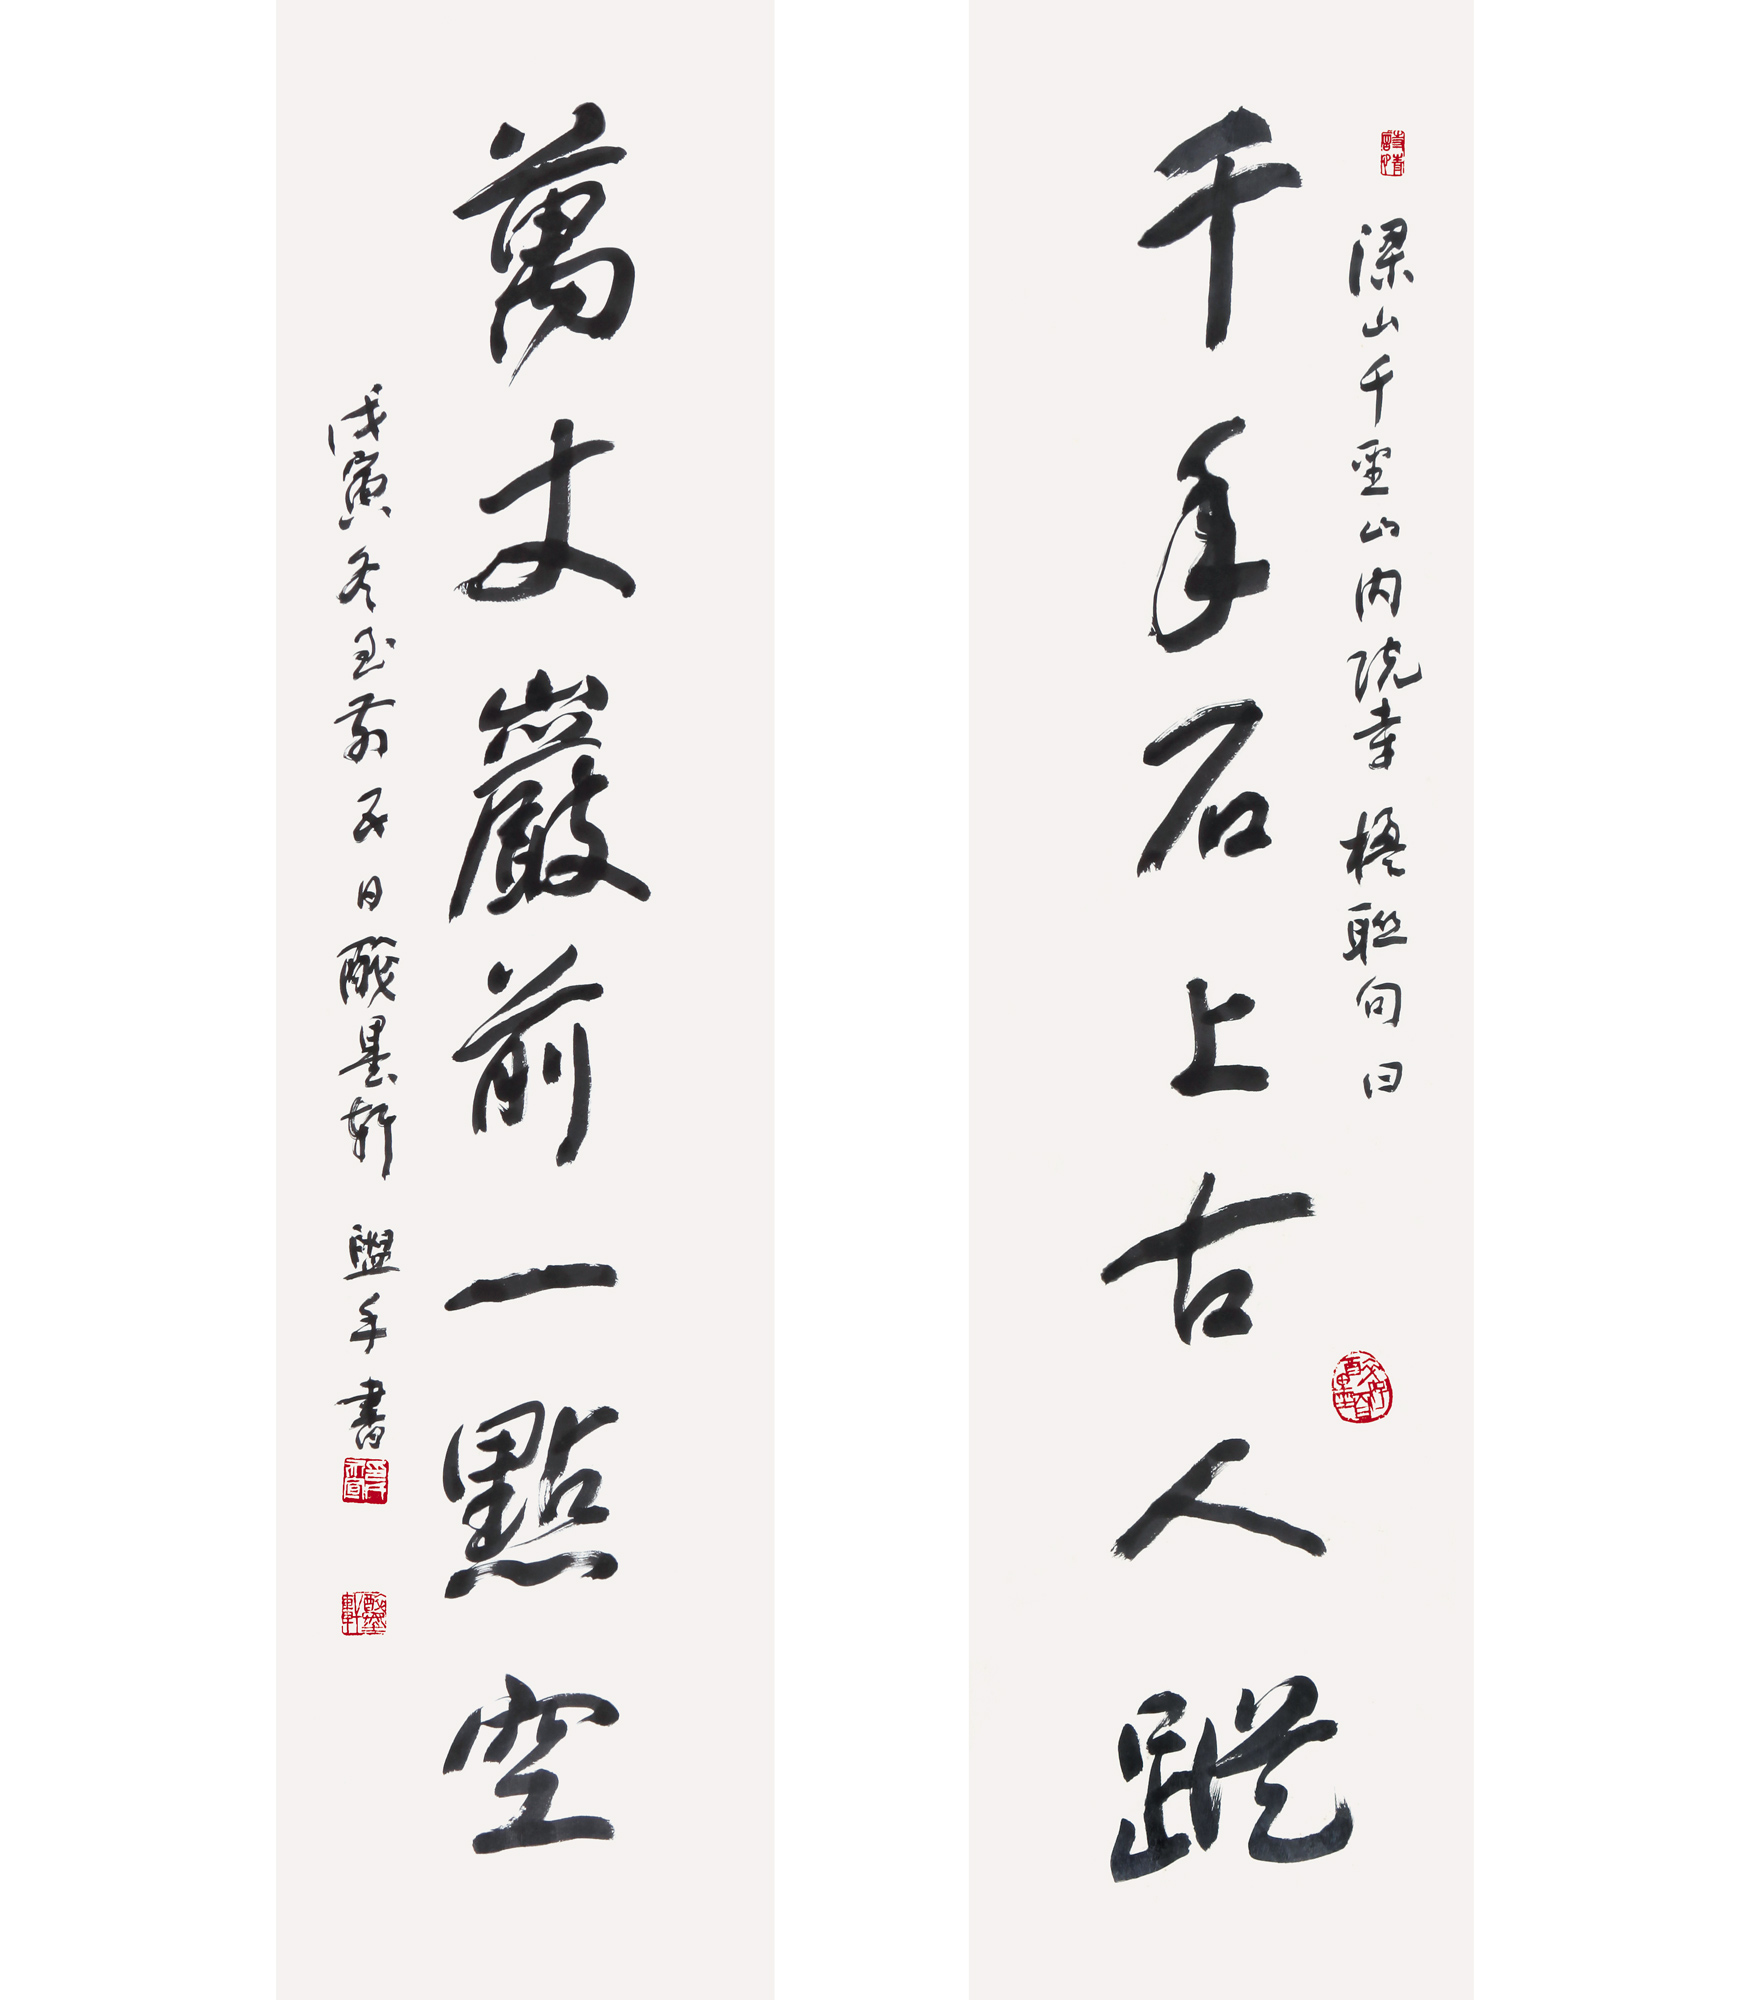 梁山千聖山内院寺楹聯句曰
千年石上古人蹤
萬丈巖前一點空
戊寅冬至前五日酸墨軒 盥手書